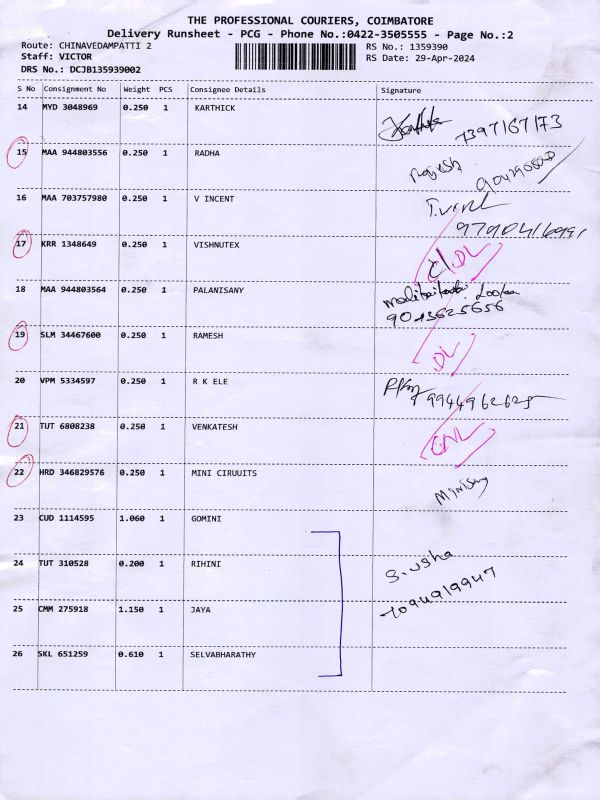 THE PROFESSIONAL COURIERS, COIMBATORE
Delivery Runsheet - PCG - Phone No.:0422-3505555 - Page No.:2
Route: CHINAVEDAMPATTI 2
RS No.: 1359390
Staff: VICTOR
RS Date: 29-Apr-2024
DRS No.: DCJB135939002
S No Consignment No Weight PCS Consignee Details Signature
14 MYD 3048969 0.250 1 KARTHICK
7397167173
15 MAA 944803556 0.250 1 RADHA
16 MAA 703757980 0.250 1 V INCENT
17 KRR 1348649 0.250 1 VISHNUTEX
DL
18 MAA 944803564 0.250 1 PALANISANY
19 SLM 34467600 0.250 1 RAMESH
DL
20 VPM 5334597 0.250 1 R K ELE
9944962625
21 TUT 6808238 0.250 1 VENKATESH
22 HRD 346829576 0.250 1 MINI CIRUUITS
23 CUD 1114595 1.060 1 GOMINI
24 TUT 310528 0.200 1 RIHINI
S. Usha
25 CMM 275918 1.150 1 JAYA
26 SKL 651259 0.610 1 SELVABHARATHY